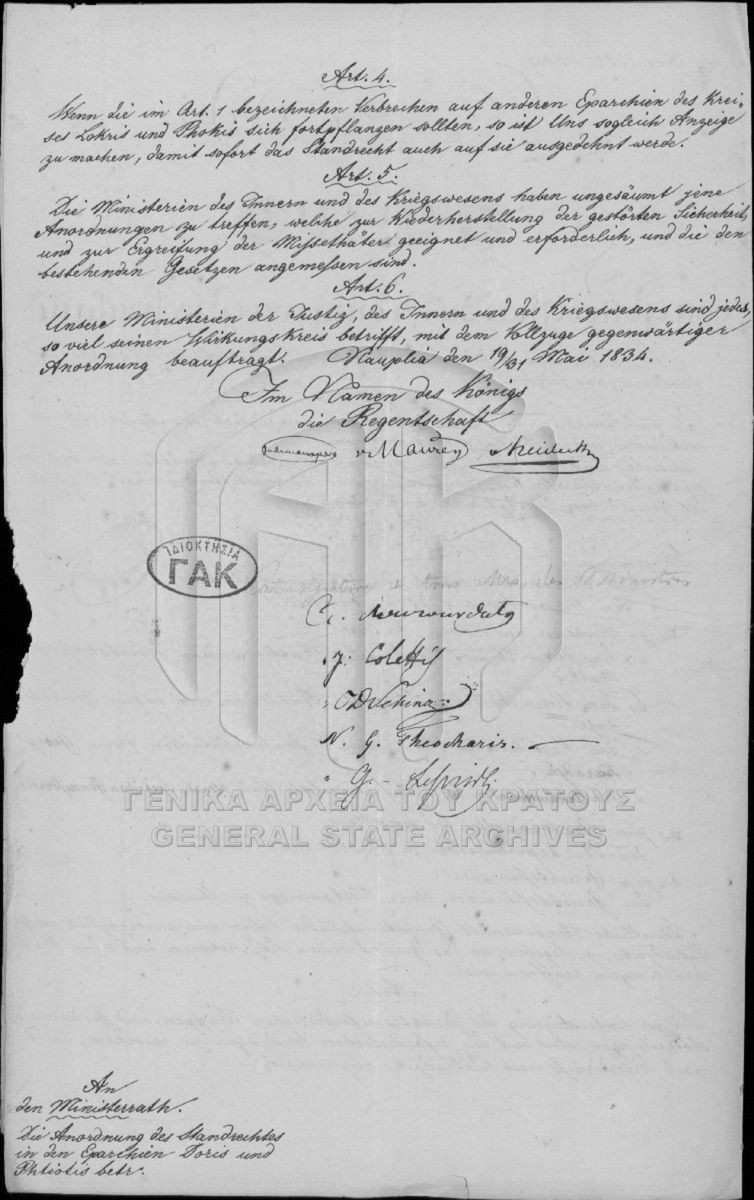 Art. 4.
Wenn die im Art. 1 bezeichneten Verbrechen auf anderen Eparchien des Krei-
ses Lokris und Phokis sich fortpflanzen sollten, so ist Uns sogleich Anzeige
zu machen, damit sofort das Standrecht auch auf sie ausgedehnt werde.
Art. 5.
Die Ministerien des Innern und des Kriegswesens haben ungesäumt jene
Anordnungen zu treffen, welche zur Wiederherstellung der gestörten Sicherheit,
und zur Ergreifung der Missethäter geeignet und erforderlich, und die den
bestehenden Gesetzen angemessen sind.
Art. 6.
Unsere Ministerien der Justiz, des Innern und des Kriegswesens sind jedes,
so viel seinen Wirkungskreis betrifft, mit dem Vollzuge gegenwärtiger
Anordnung beauftragt. Nauplia den 19/31 Mai 1834.
Im Namen des Königs
die Regentschaft
v Maurer Heideck
ΙΔΙΟΚΤΗΣΙΑ
ΓΑΚ
J. Colettis
N. G. Theocharis.
G.
ΓΕΝΙΚΑ ΑΡΧΕΙΑ ΤΟΥ ΚΡΑΤΟΥΣ
GENERAL STATE ARCHIVES
An
den Ministerrath.
Die Anordnung des Standrechtes
in den Eparchien Doris und
Phtiotis betr.